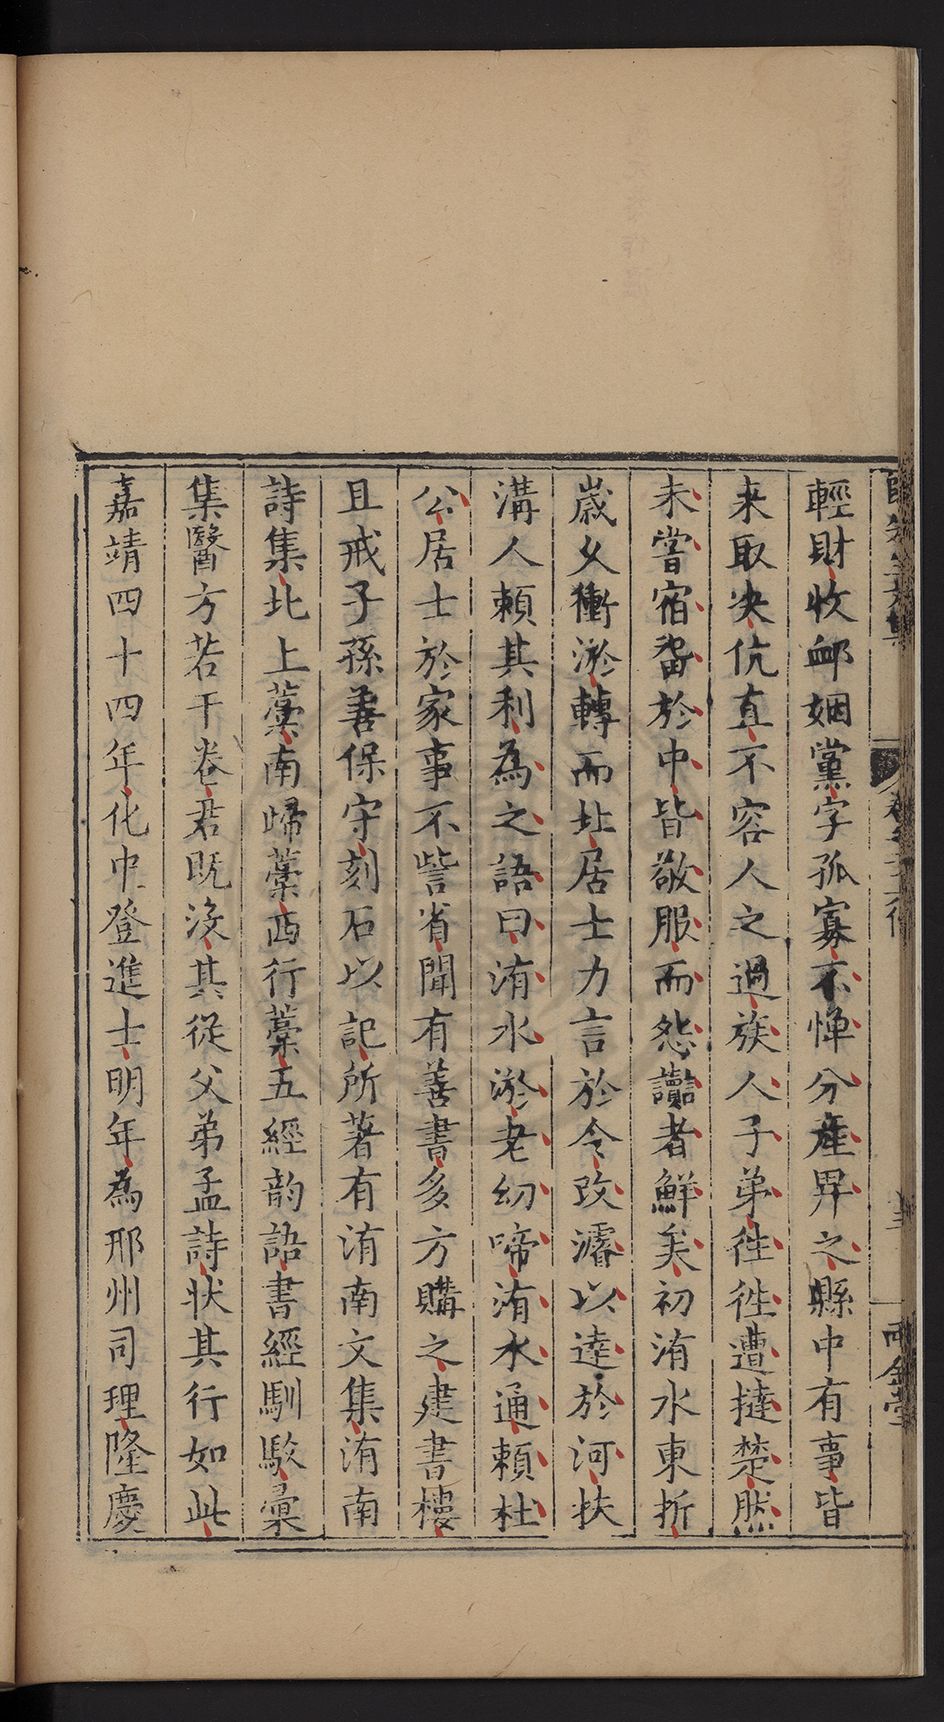 輕財收衈姻黨字孤寡不憚分產畀之縣中有事皆
来取决伉直不容人之過族人子弟徃徃遭撻楚然
未嘗宿畱於中皆敬服而怨讟者鮮矣初洧水東折
歲乆衝淤轉而北居士力言於令攻濬以達於河扶
溝人賴其利為之語曰洧水淤老幼啼洧水通賴杜
公居士於家事不訾省聞有善書多方購之建書樓
且戒子孫善保守刻石以記所著有洧南文集洧南
詩集北上藁南歸藁西行藁五經韵語書經馴駮彙
集醫方若干卷君既沒其從父弟孟詩狀其行如此
嘉靖四十四年化中登進士明年為邢州司理隆慶
雨金堂